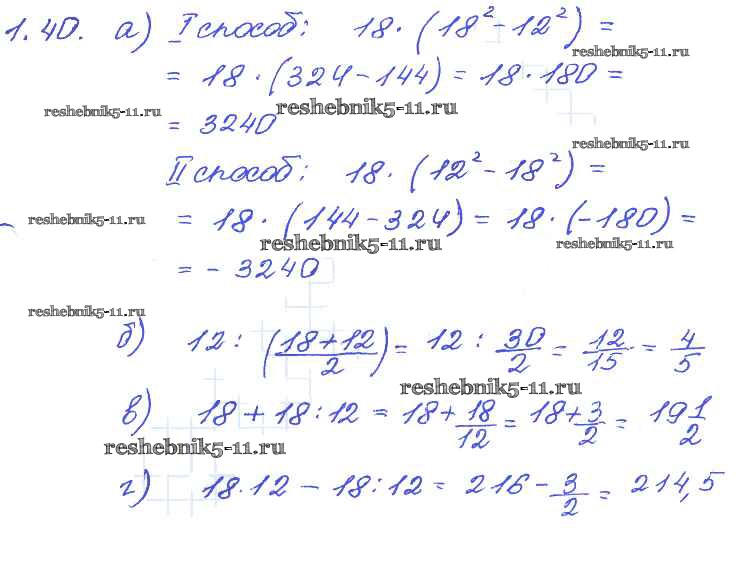 1.40. а) I способ: 18 · (18² - 12²) =
reshebnik5-11.ru
= 18 · (324 - 144) = 18 · 180 =
reshebnik5-11.ru reshebnik5-11.ru
= 3240
reshebnik5-11.ru
II способ: 18 · (12² - 18²) =
reshebnik5-11.ru = 18 · (144 - 324) = 18 · (-180) =
reshebnik5-11.ru reshebnik5-11.ru
= - 3240
reshebnik5-11.ru
б) 12 : ((18+12)/2) = 12 : 30/2 = 12/15 = 4/5
reshebnik5-11.ru
в) 18 + 18 : 12 = 18 + 18/12 = 18 + 3/2 = 19 1/2
reshebnik5-11.ru
г) 18 · 12 - 18 : 12 = 216 - 3/2 = 214,5